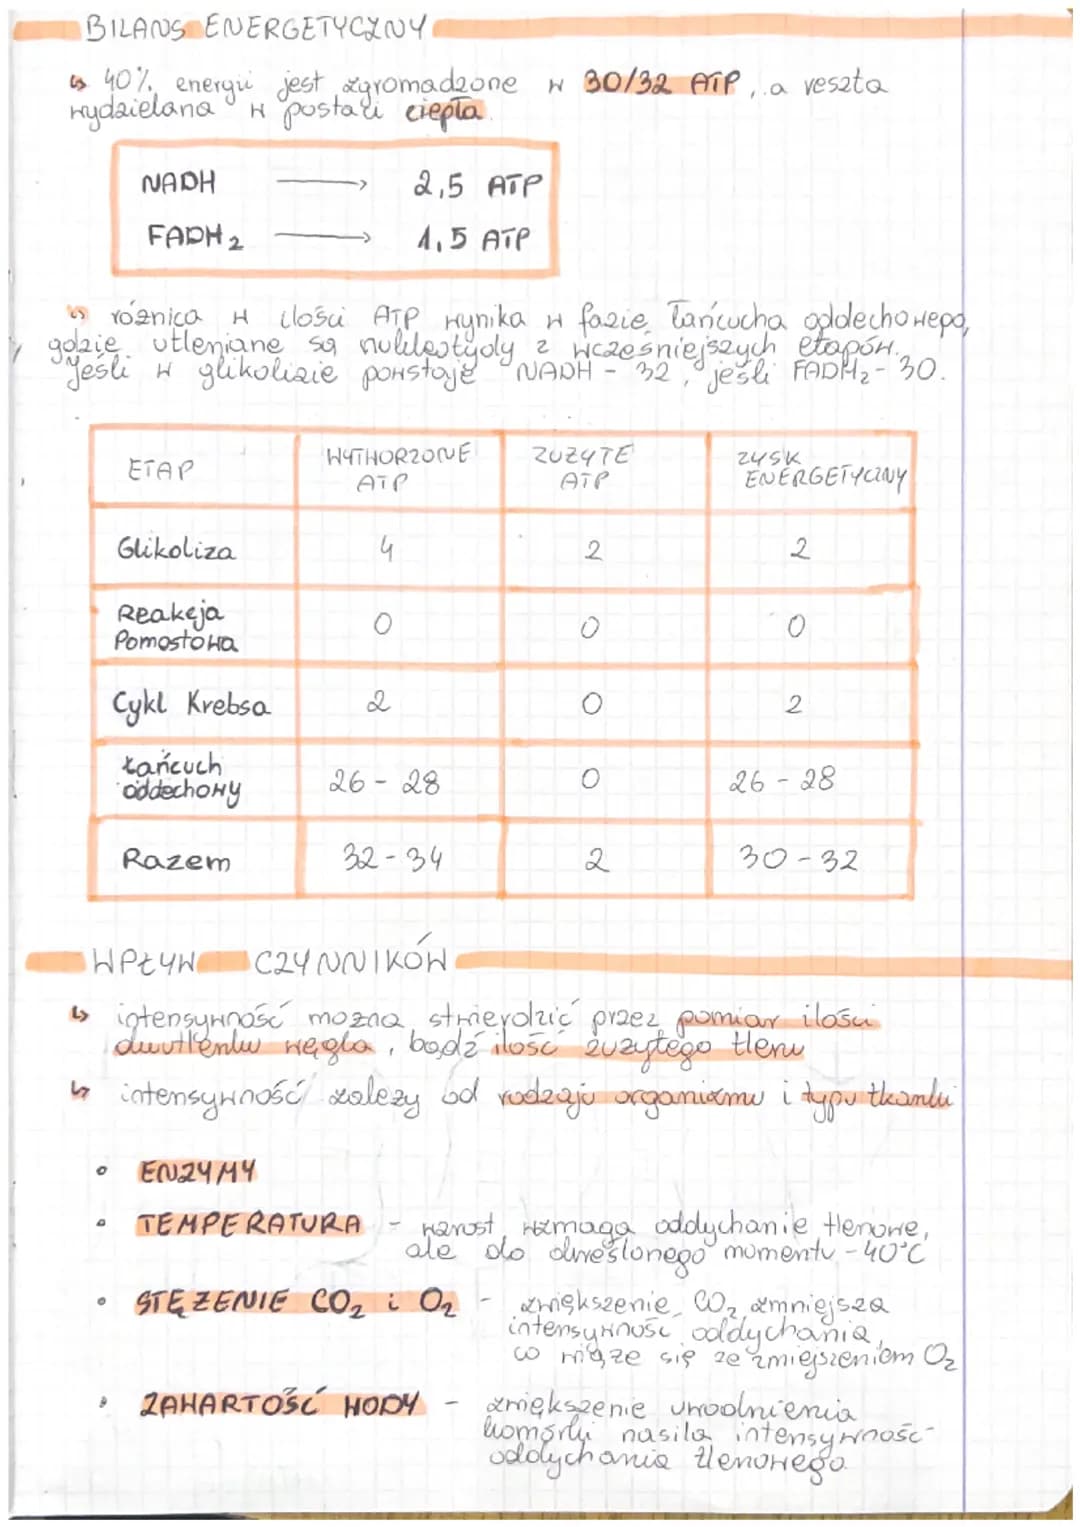 BILANS ENERGETYCZNY
↳ 40% energii jest zgromadzone w 30/32 ATP, a reszta
wydzielana w postaci ciepła.
NADH → 2,5 ATP
FADH2 → 1,5 ATP
↳ różnica w ilości ATP wynika w fazie łańcucha oddechowego,
gdzie utleniane są nukleotydy z wcześniejszych etapów.
Jeśli w glikolizie powstaje NADH - 32, jeśli FADH2 - 30.
ETAP WYTWORZONE ATP ZUŻYTE ATP ZYSK ENERGETYCZNY
Glikoliza 4 2 2
Reakcja Pomostowa 0 0 0
Cykl Krebsa 2 0 2
Łańcuch oddechowy 26 - 28 0 26 - 28
Razem 32 - 34 2 30 - 32
WPŁYW CZYNNIKÓW
↳ intensywność można stwierdzić przez pomiar ilości
dwutlenku węgla, bądź ilość zużytego tlenu
↳ intensywność zależy od rodzaju organizmu i typu tkanki
• ENZYMY
• TEMPERATURA - wzrost wzmaga oddychanie tlenowe,
ale do określonego momentu - 40°C
• STĘŻENIE CO2 i O2 - zwiększenie CO2 zmniejsza
intensywność oddychania,
co wiąże się ze zmiejszeniem O2
• ZAWARTOŚĆ WODY - zwiększenie uwodnienia
komórki nasila intensywność
oddychania tlenowego